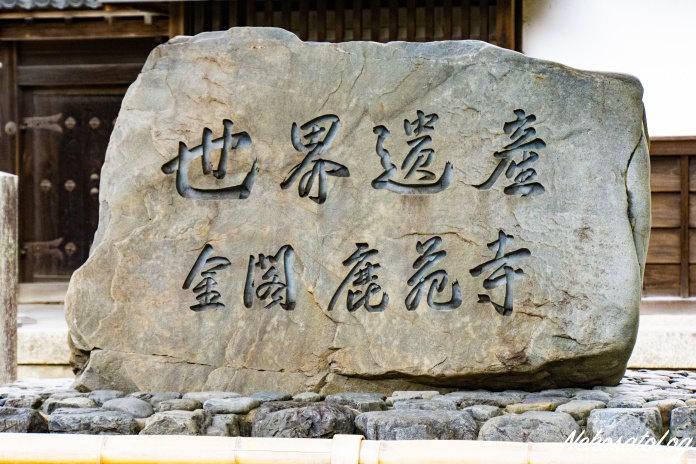 世界遺産
金閣 鹿苑寺
NekosatoLog